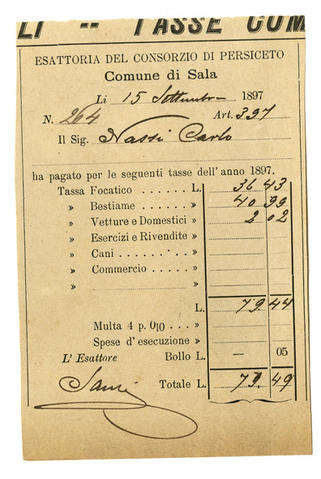 LI -- TASSE COM
ESATTORIA DEL CONSORZIO DI PERSICETO
Comune di Sala
Li 15 Settembre 1897
N. 264 Art. 397
Il Sig. Nassi Carlo
ha pagato per le seguenti tasse dell'anno 1897.
Tassa Focatico . . . . . . L. 36 43
» Bestiame . . . . . . » 40 99
» Vetture e Domestici » 2 02
» Esercizi e Rivendite »
» Cani . . . . . . . . »
» Commercio . . . . . »
» »
L. 79 44
Multa 4 p. 0|0 . . . »
Spese d'esecuzione . »
L' Esattore Bollo L. — 05
Totale L. 79 49